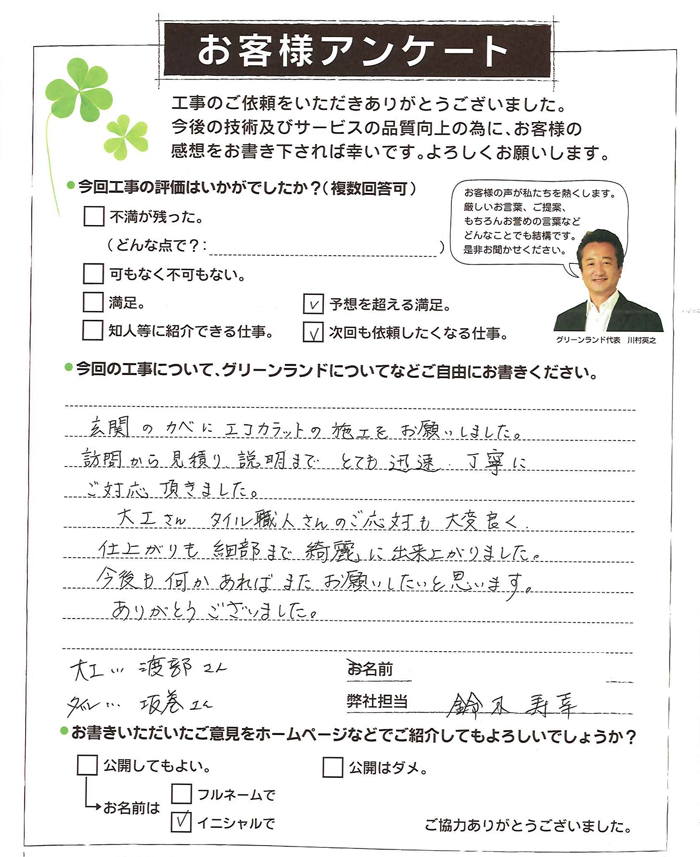 お客様アンケート
工事のご依頼をいただきありがとうございました。
今後の技術及びサービスの品質向上の為に、お客様の
感想をお書き下されば幸いです。よろしくお願いします。
今回工事の評価はいかがでしたか？（複数回答可）
不満が残った。
（どんな点で？：　　　）
可もなく不可もない。
満足。
予想を超える満足。
知人等に紹介できる仕事。
次回も依頼したくなる仕事。
お客様の声が私たちを熱くします。
厳しいお言葉、ご提案、
もちろんお誉めの言葉など
どんなことでも結構です。
是非お聞かせください。
グリーンランド代表　川村英之
今回の工事について、グリーンランドについてなどご自由にお書きください。
玄関のカベにエコカラットの施工をお願いしました。
訪問から見積り 説明まで とても迅速．丁寧に
ご対応 頂きました。
大工さん タイル職人さんのご応対も 大変良く．
仕上がりも 細部まで 綺麗に出来上がりました。
今後も 何か あれば また お願いしたいと思います。
ありがとう ございました。
大工… 渡部さん
お名前
タイル… 坂巻さん
弊社担当 鈴木寿幸
お書きいただいたご意見をホームページなどでご紹介してもよろしいでしょうか？
公開してもよい。
公開はダメ。
お名前は
フルネームで
イニシャルで
ご協力ありがとうございました。